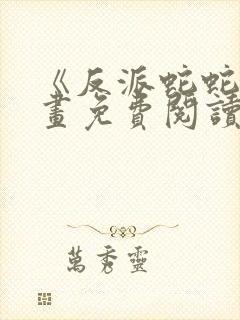 《反派蛇蛇
畫免費閱讀
萬秀靈